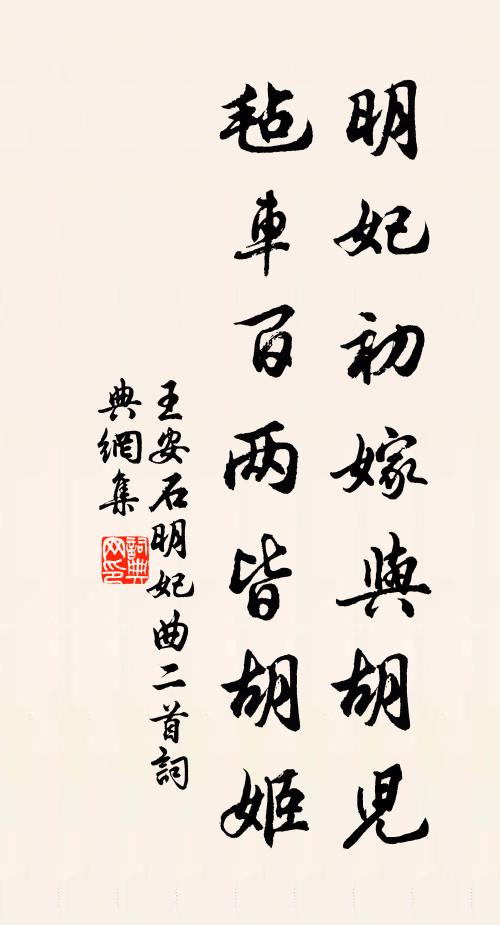 明妃初嫁與胡兒
毡車百两皆胡姬
王安石明妃曲二首詞
典網集
詞典网印